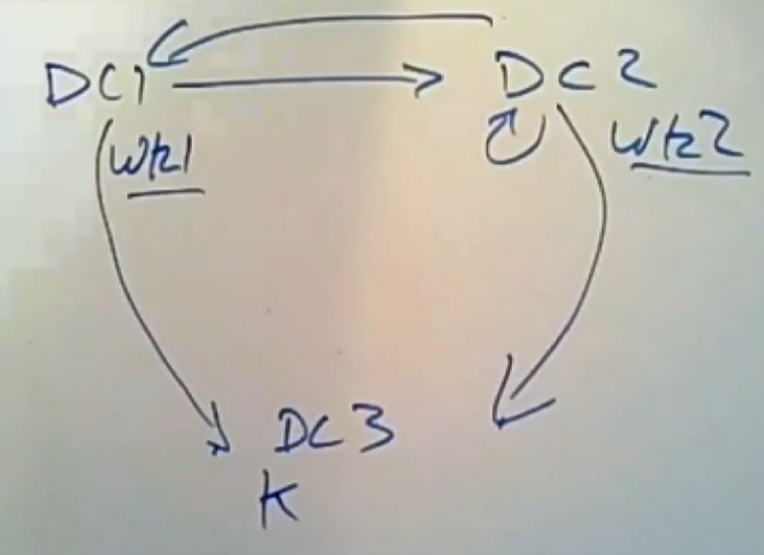 DC1 DC2
Wk1 Wk2
DC3
K